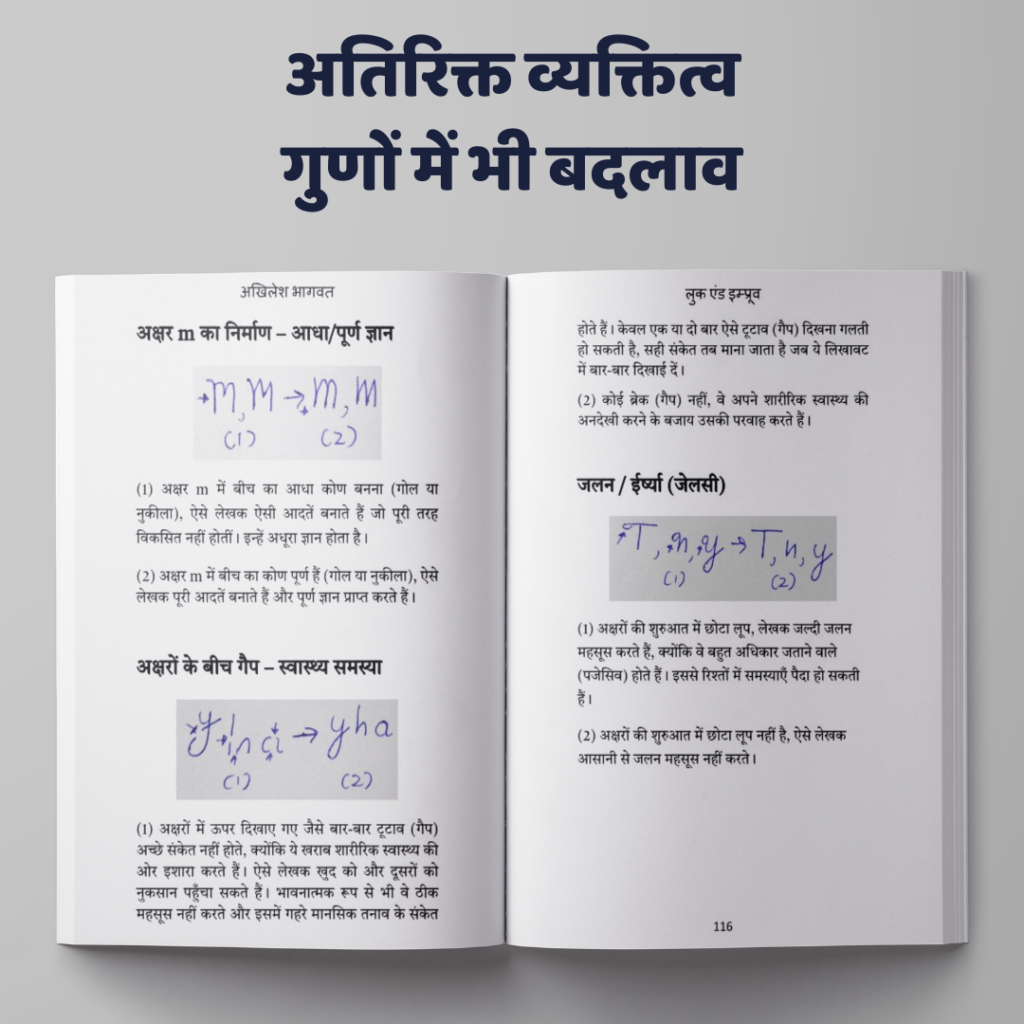 अतिरिक्त व्यक्तित्व
गुणों में भी बदलाव
अखिलेश भागवत
अक्षर m का निर्माण – आधा/पूर्ण ज्ञान
m, m → m, m
(1) (2)
(1) अक्षर m में बीच का आधा कोण बनना (गोल या
नुकीला), ऐसे लेखक ऐसी आदतें बनाते हैं जो पूरी तरह
विकसित नहीं होतीं। इन्हें अधूरा ज्ञान होता है।
(2) अक्षर m में बीच का कोण पूर्ण हैं (गोल या नुकीला), ऐसे
लेखक पूरी आदतें बनाते हैं और पूर्ण ज्ञान प्राप्त करते हैं।
अक्षरों के बीच गैप – स्वास्थ्य समस्या
y h a → y h a
(1) (2)
(1) अक्षरों में ऊपर दिखाए गए जैसे बार-बार टूटाव (गैप)
अच्छे संकेत नहीं होते, क्योंकि ये खराब शारीरिक स्वास्थ्य की
ओर इशारा करते हैं। ऐसे लेखक खुद को और दूसरों को
नुकसान पहुँचा सकते हैं। भावनात्मक रूप से भी वे ठीक
महसूस नहीं करते और इसमें गहरे मानसिक तनाव के संकेत
लुक एंड इम्प्रूव
होते हैं। केवल एक या दो बार ऐसे टूटाव (गैप) दिखना गलती
हो सकती है, सही संकेत तब माना जाता है जब ये लिखावट
में बार-बार दिखाई दें।
(2) कोई ब्रेक (गैप) नहीं, वे अपने शारीरिक स्वास्थ्य की
अनदेखी करने के बजाय उसकी परवाह करते हैं।
जलन / ईर्ष्या (जेलसी)
T, n, y → T, n, y
(1) (2)
(1) अक्षरों की शुरुआत में छोटा लूप, लेखक जल्दी जलन
महसूस करते हैं, क्योंकि वे बहुत अधिकार जताने वाले
(पजेसिव) होते हैं। इससे रिश्तों में समस्याएँ पैदा हो सकती
हैं।
(2) अक्षरों की शुरुआत में छोटा लूप नहीं है, ऐसे लेखक
आसानी से जलन महसूस नहीं करते।
116